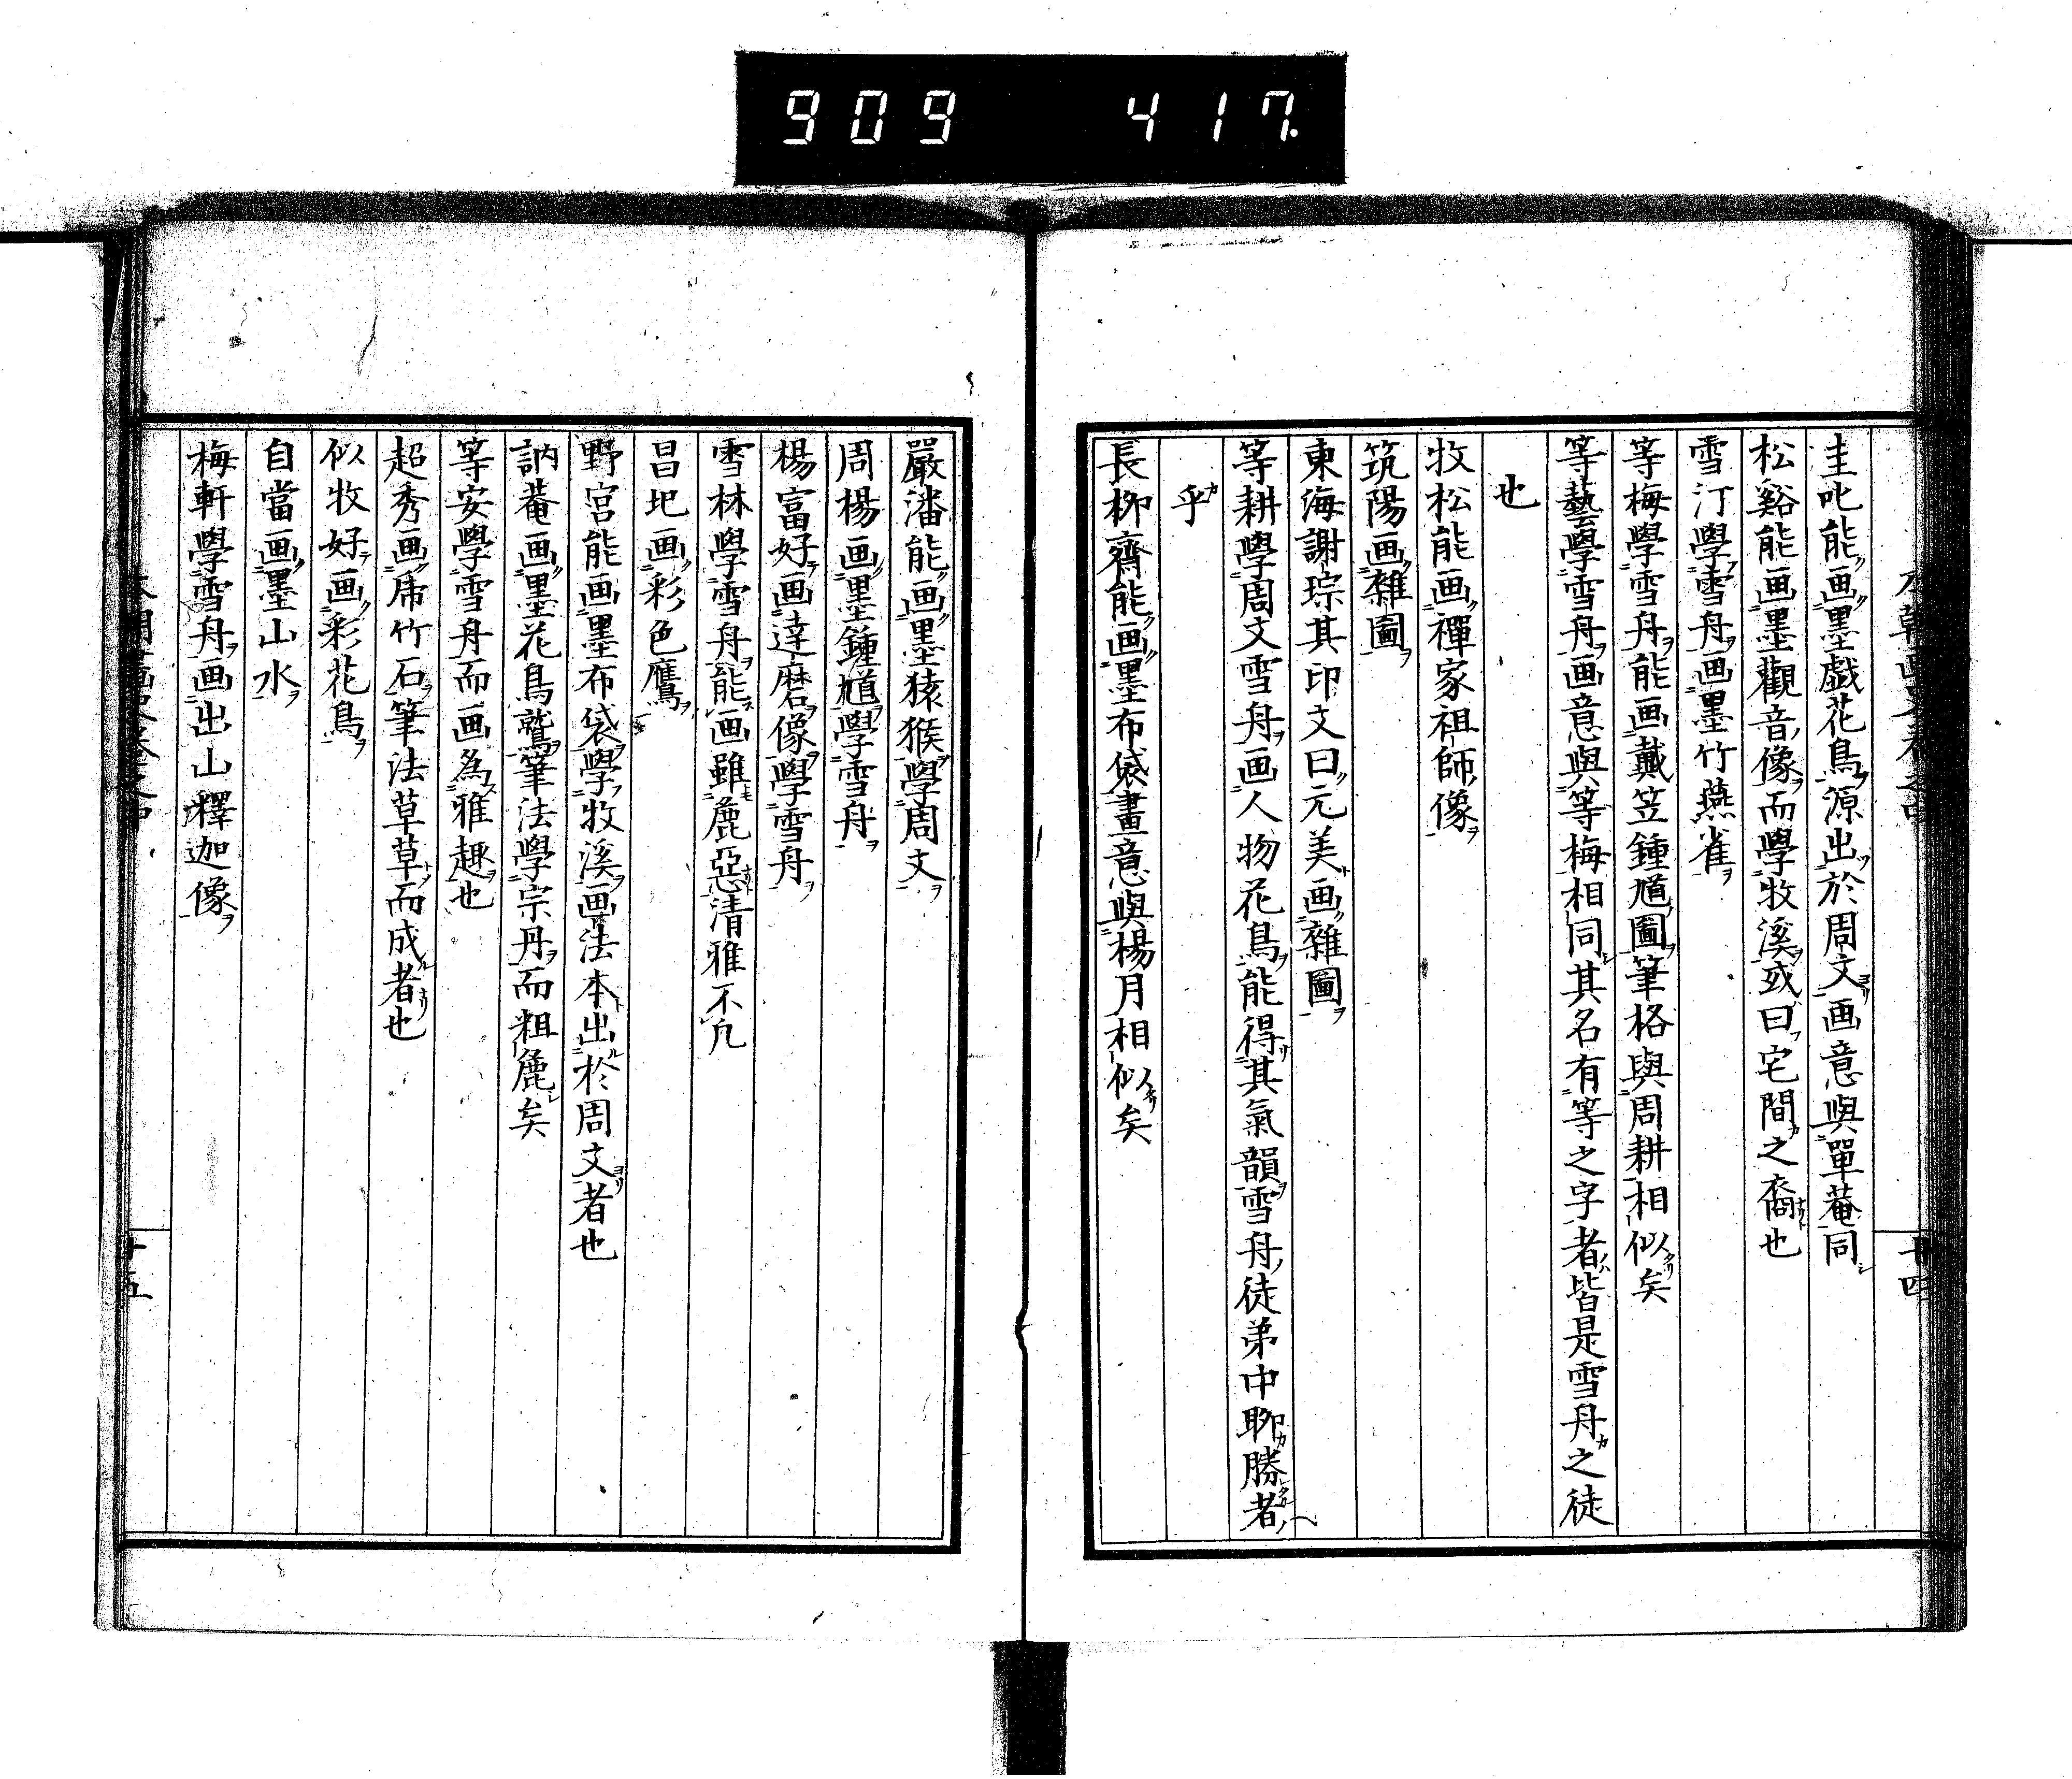 909 417.
圭叱能画墨戯花鳥源出於周文画意與單菴同
松谿能画墨觀音像而學牧溪或曰宅間之裔也
雪汀學雪舟画墨竹燕雀
等梅學雪舟能画戴笠鍾馗圖筆格與周耕相似矣
等藝學雪舟画意與等梅相同其名有等之字者皆是雪舟之徒
也
牧松能画禪家祖師像
筑陽画雜圖
東海謝琮其印文曰元美画雜圖
等耕學周文雪舟画人物花鳥能得其氣韻雪舟徒弟中聊勝者
乎
長柳齋能画墨布袋畫意與楊月相似矣
嚴潘能画墨猿猴學周文
周楊画墨鍾馗學雪舟
楊富好画達磨像學雪舟
雪林學雪舟能画雖麁惡清雅不凢
昌圯画彩色鷹
野宮能画墨布袋學牧溪画法本出於周文者也
訥菴画墨花鳥鷲筆法學宗丹而粗麁矣
等安學雪舟而画為雅趣也
超秀画乕竹石筆法草草而成者也
似牧好画彩花鳥
自當画墨山水
梅軒學雪舟画出山釋迦像
十五